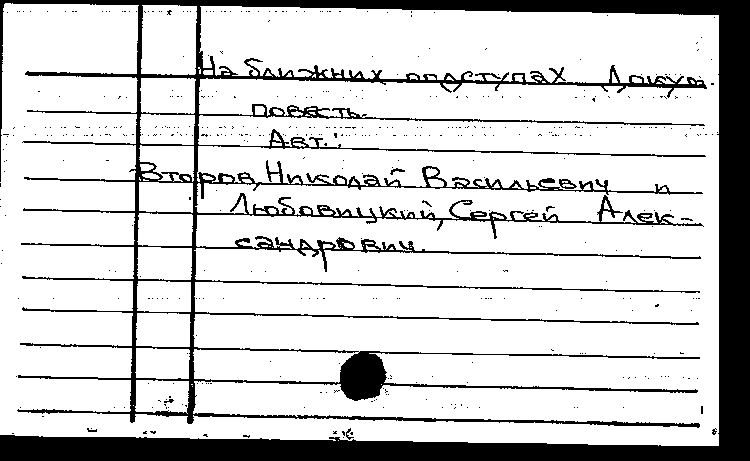 На ближних подступах Докум.
повесть.
Авт.:
Второв, Николай Васильевич и
Любовицкий, Сергей Алек-
сандрович.